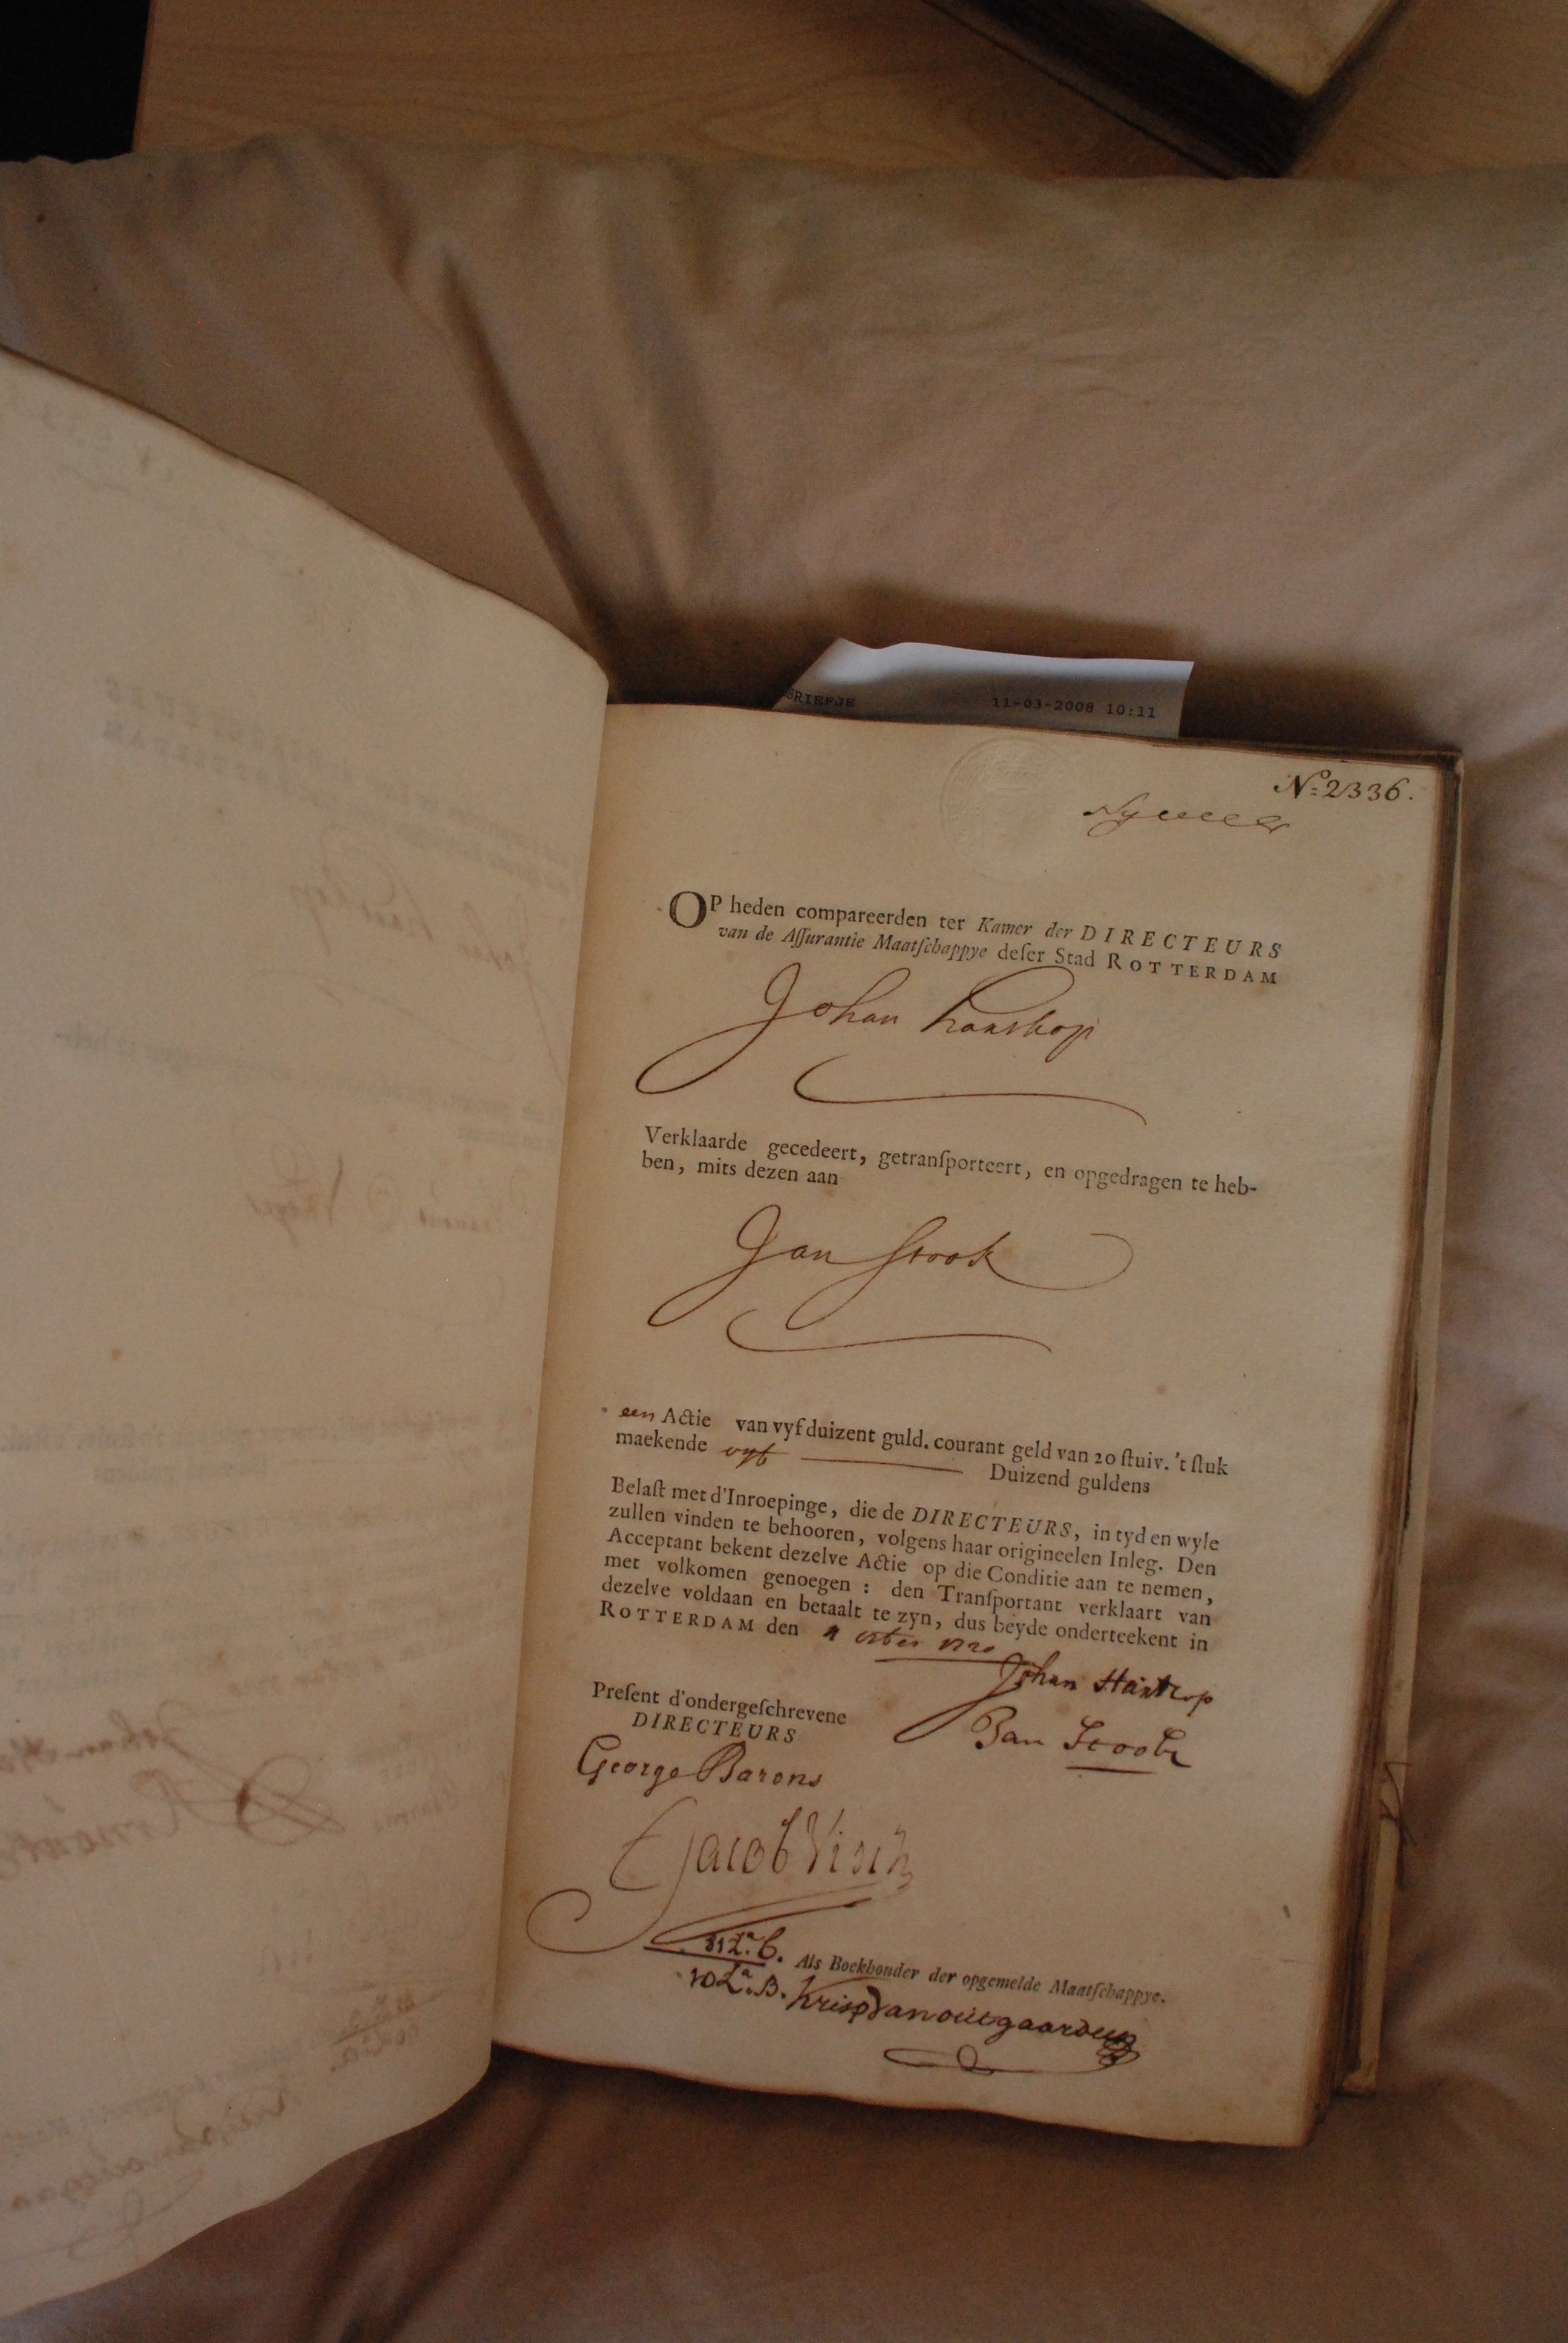 GRIEFJE 11-03-2008 10:11
No: 2336.
OP heden compareerden ter Kamer der DIRECTEURS
van de Aſſurantie Maatſchappye deſer Stad ROTTERDAM
Johan
Verklaarde gecedeert, getranſporteert, en opgedragen te heb-
ben, mits dezen aan
Jan Stook
een Actie van vyf duizent guld. courant geld van 20 ſtuiv. 't ſtuk
maekende vyf Duizend guldens
Belaſt met d'Inroepinge, die de DIRECTEURS, in tyd en wyle
zullen vinden te behooren, volgens haar origineelen Inleg. Den
Acceptant bekent dezelve Actie op die Conditie aan te nemen,
met volkomen genoegen : den Tranſportant verklaart van
dezelve voldaan en betaalt te zyn, dus beyde onderteekent in
ROTTERDAM den 1720
Johan Hartrop
Preſent d'ondergeſchrevene
DIRECTEURS
Jan
George Barons
Jacob Visch
Als Boekhouder der opgemelde Maatſchappye.